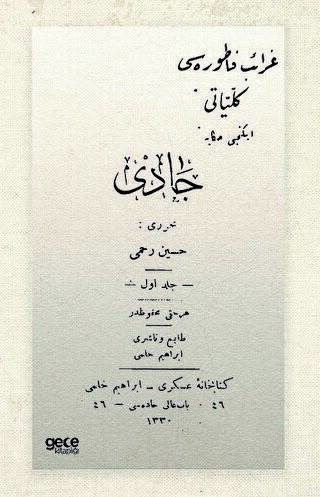 غرائب فاطوره‌سی
كلّیاتی
ایكنجی حكایه
جادی
محرری :
حسین رحمی
— جلد اول —
هر حقی محفوظدر
طابع و ناشری
ابراهیم حلمی
كتابخانۀ عسكری – ابراهیم حلمی
٤٦ · باب عالی جاده‌سی – ٤٦
١٣٣٠
gece
kitaplığı